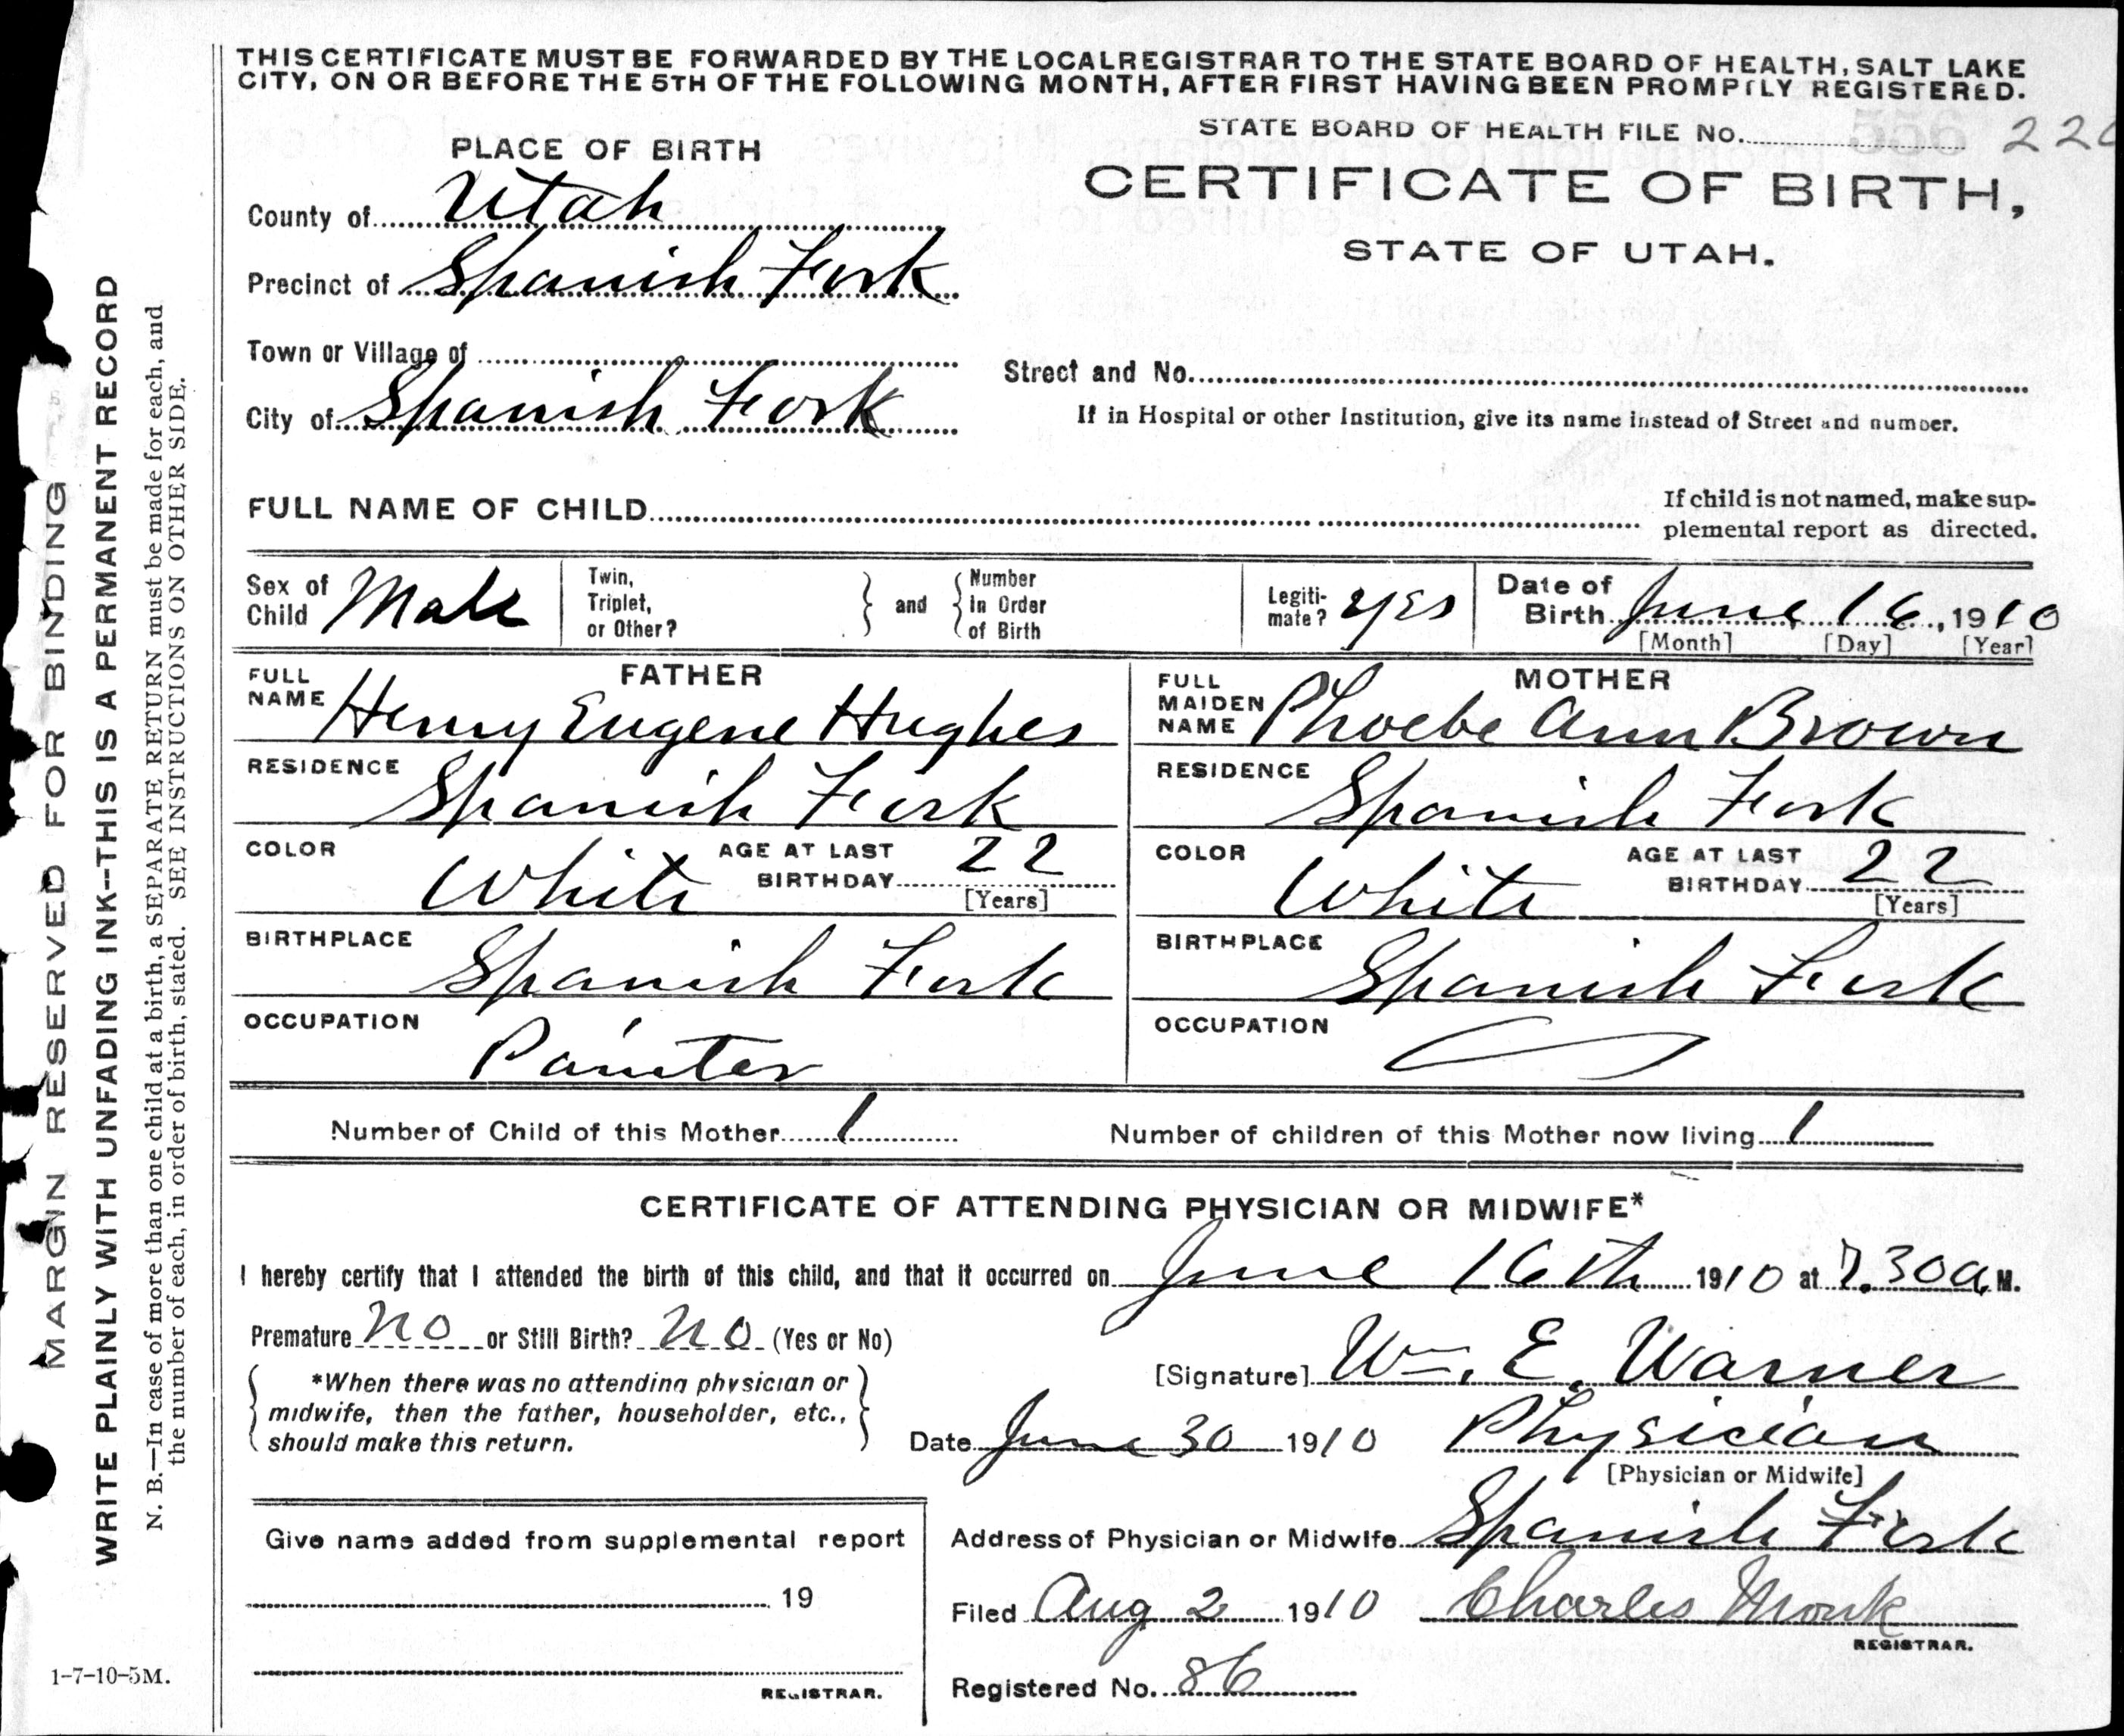 THIS CERTIFICATE MUST BE FORWARDED BY THE LOCAL REGISTRAR TO THE STATE BOARD OF HEALTH, SALT LAKE
CITY, ON OR BEFORE THE 5TH OF THE FOLLOWING MONTH, AFTER FIRST HAVING BEEN PROMPTLY REGISTERED.
STATE BOARD OF HEALTH FILE No. 556
PLACE OF BIRTH
CERTIFICATE OF BIRTH,
STATE OF UTAH.
County of Utah
Precinct of Spanish Fork
Town or Village of
Street and No.
City of Spanish Fork
If in Hospital or other Institution, give its name instead of Street and number.
FULL NAME OF CHILD
If child is not named, make sup-
plemental report as directed.
Sex of Child Male
Twin, Triplet, or Other?
and
Number in Order of Birth
Legiti-mate? yes
Date of Birth June 16, 1910
[Month] [Day] [Year]
FATHER
FULL NAME Henry Eugene Hughes
RESIDENCE Spanish Fork
COLOR White
AGE AT LAST BIRTHDAY 22
[Years]
BIRTHPLACE Spanish Fork
OCCUPATION Painter
MOTHER
FULL MAIDEN NAME Phoebe Ann Brown
RESIDENCE Spanish Fork
COLOR White
AGE AT LAST BIRTHDAY 22
[Years]
BIRTHPLACE Spanish Fork
OCCUPATION
Number of Child of this Mother 1
Number of children of this Mother now living 1
CERTIFICATE OF ATTENDING PHYSICIAN OR MIDWIFE*
I hereby certify that I attended the birth of this child, and that it occurred on June 16th 1910 at 7.30 a M.
Premature no or Still Birth? no (Yes or No)
*When there was no attending physician or
midwife, then the father, householder, etc.,
should make this return.
[Signature] Wm. E. Warner
Date June 30 1910 Physician
[Physician or Midwife]
Give name added from supplemental report
19
REGISTRAR.
Address of Physician or Midwife Spanish Fork
Filed Aug 2 1910 Charles Monk
REGISTRAR.
Registered No. 86
MARGIN RESERVED FOR BINDING
WRITE PLAINLY WITH UNFADING INK--THIS IS A PERMANENT RECORD
N. B.—In case of more than one child at a birth, a SEPARATE RETURN must be made for each, and
the number of each, in order of birth, stated. SEE INSTRUCTIONS ON OTHER SIDE.
1-7-10-5M.